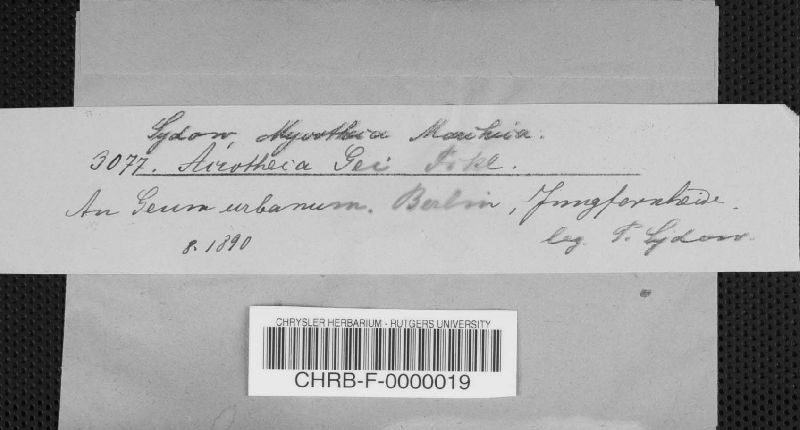 Sydow, Mycotheca Marchica.
3077. Aicotheca Gei Fckl.
An Geum urbanum. Berlin, Jungfernheide.
8. 1890
leg. P. Sydow.
CHRYSLER HERBARIUM - RUTGERS UNIVERSITY
CHRB-F-0000019